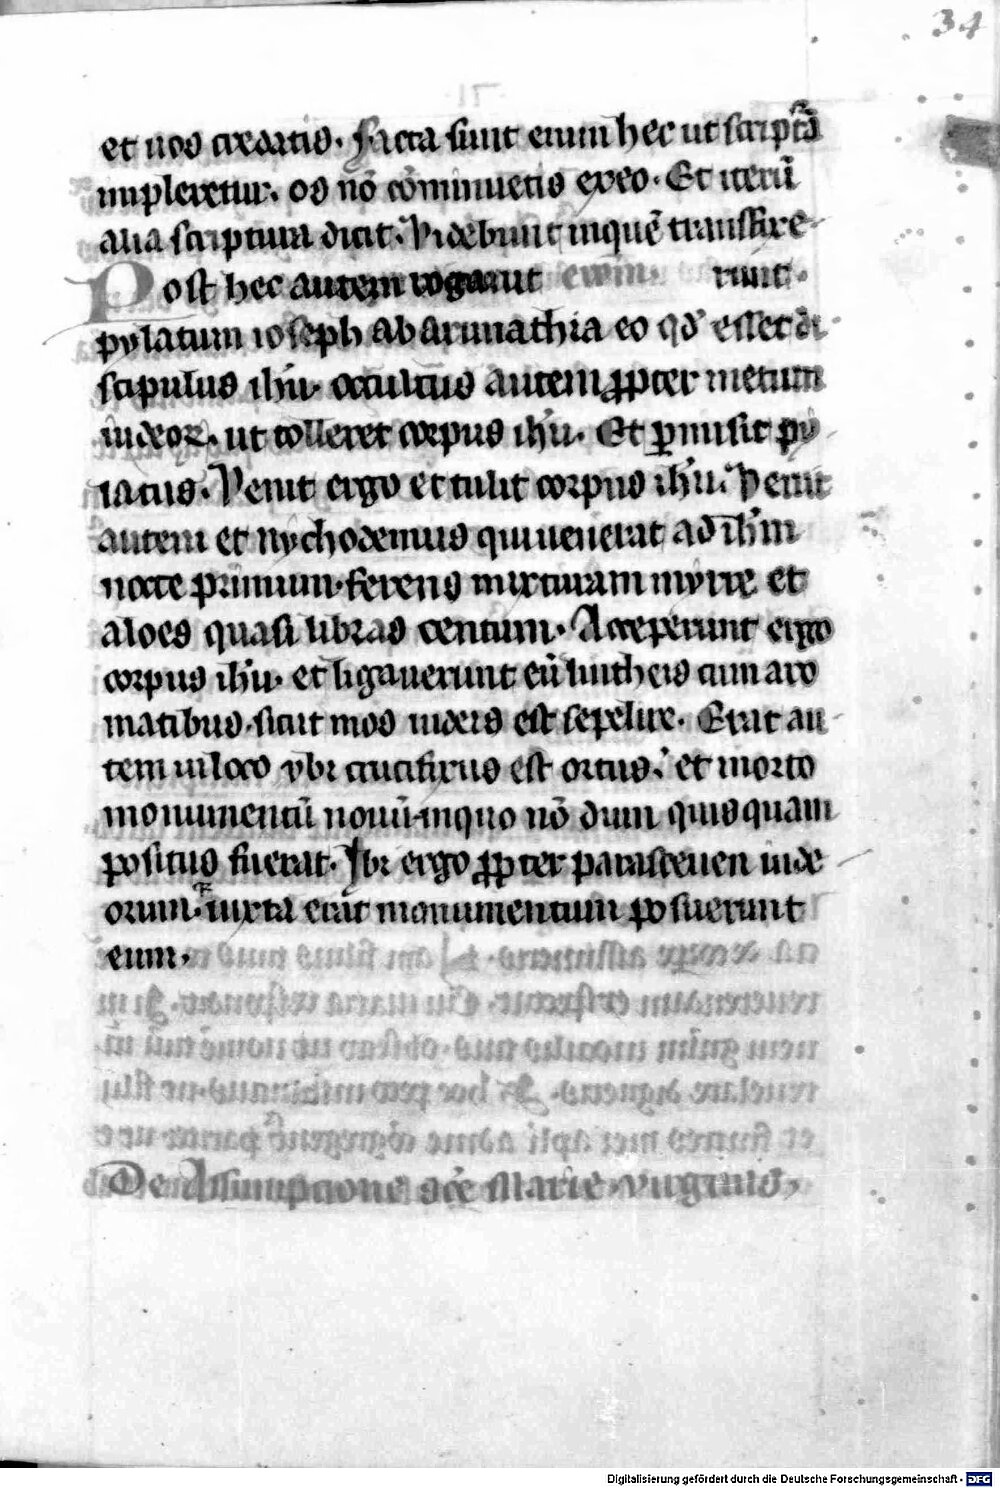 34
et uos credatis. Facta sunt enim hec ut scriptā
impleretur. os nō cōminuetis ex eo. Et iterū
alia scriptura dicit. Videbunt in quē transfixe
Post hec autem rogauit runt.
pylatum ioseph ab arimathia eo qd' esset di
scipulus ihu. occultus autem ꝓpter metum
iudeoꝝ. ut tolleret corpus ihu. Et ꝑmisit py
latus. Venit ergo et tulit corpus ihu. Venit
autem et nychodemus qui uenerat ad ihm
nocte primum. ferens mixturam myrre et
aloes quasi libras centum. Acceperunt ergo
corpus ihu. et ligauerunt eū lintheis cum aro
matibus. sicut mos iudeis est sepelire. Erat au
tem in loco vbi crucifixus est ortus. et in orto
monumentū nouū. in quo nō dum quisquam
positus fuerat. Ibi ergo ꝓpter parasceuen iude
orum. iuxta erat monumentum posuerunt
eum.
De Assumpcione scē Marie virginis.
Digitalisierung gefördert durch die Deutsche Forschungsgemeinschaft - DFG